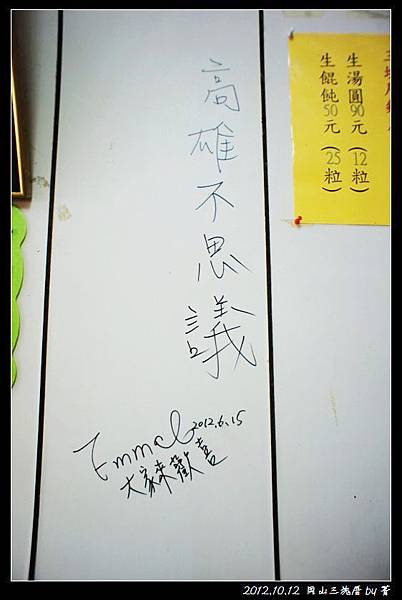 高雄不思議
Emmal 2012.6.15
大家來歡喜
生湯圓90元(12粒)
生餛飩50元(25粒)
2012.10.12 岡山三塊厝 by 菁